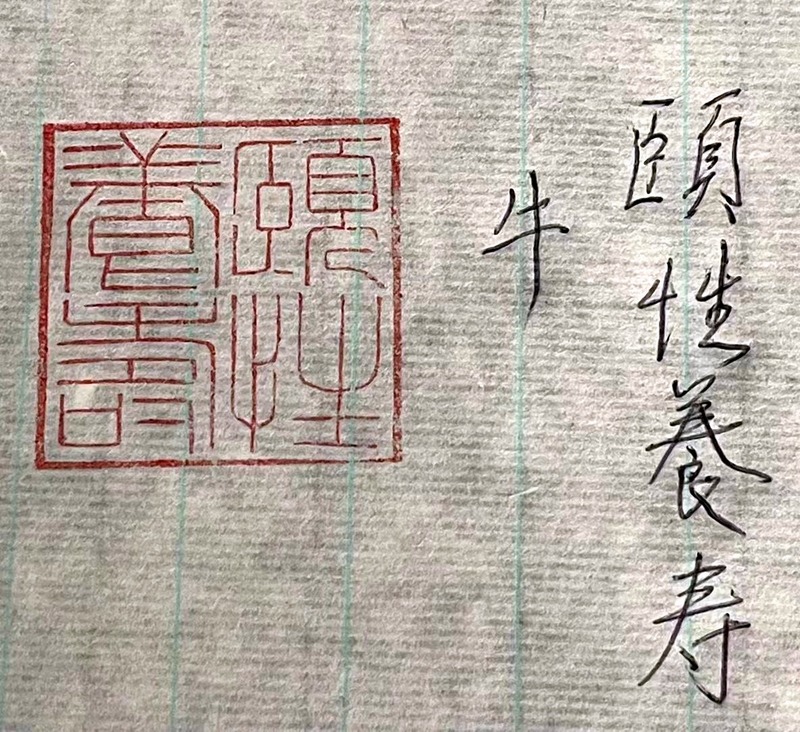 頤性養寿
牛
頤性
養壽